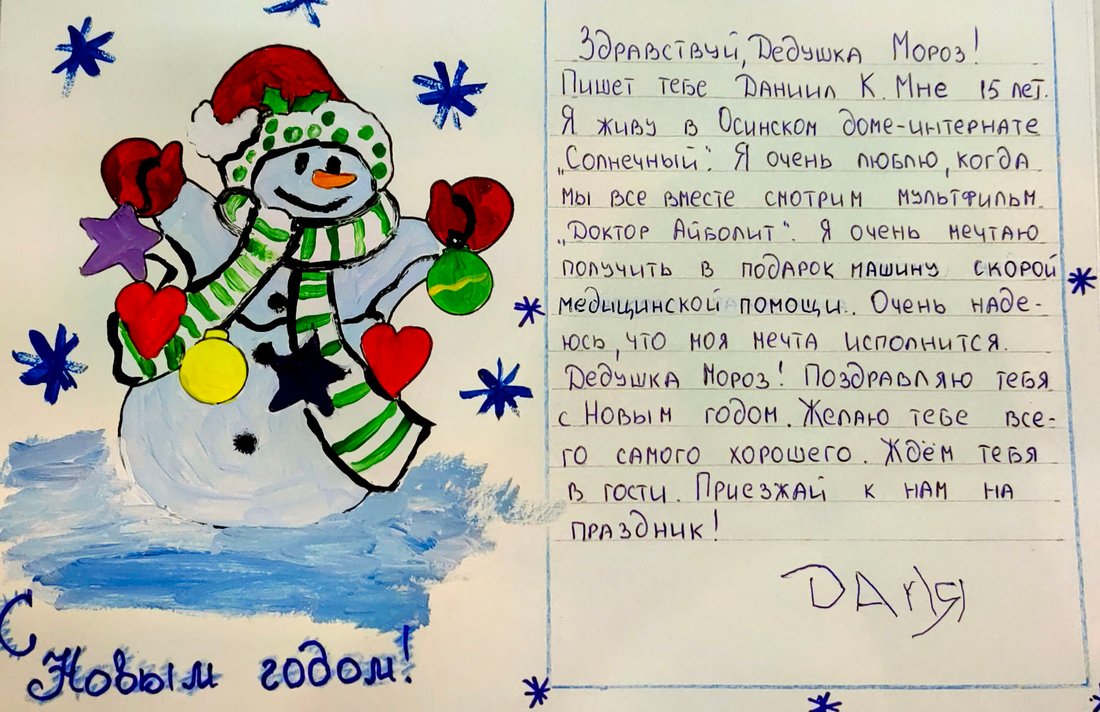 Здравствуй, Дедушка Мороз!
Пишет тебе Даниил К. Мне 15 лет.
Я живу в Осинском доме-интернате
„Солнечный". Я очень люблю, когда
мы все вместе смотрим мультфильм
„Доктор Айболит". Я очень мечтаю
получить в подарок машину скорой
медицинской помощи. Очень наде-
юсь, что моя мечта исполнится.
Дедушка Мороз! Поздравляю тебя
с Новым годом. Желаю тебе все-
го самого хорошего. Ждём тебя
в гости. Приезжай к нам на
праздник!
С
Новым годом!